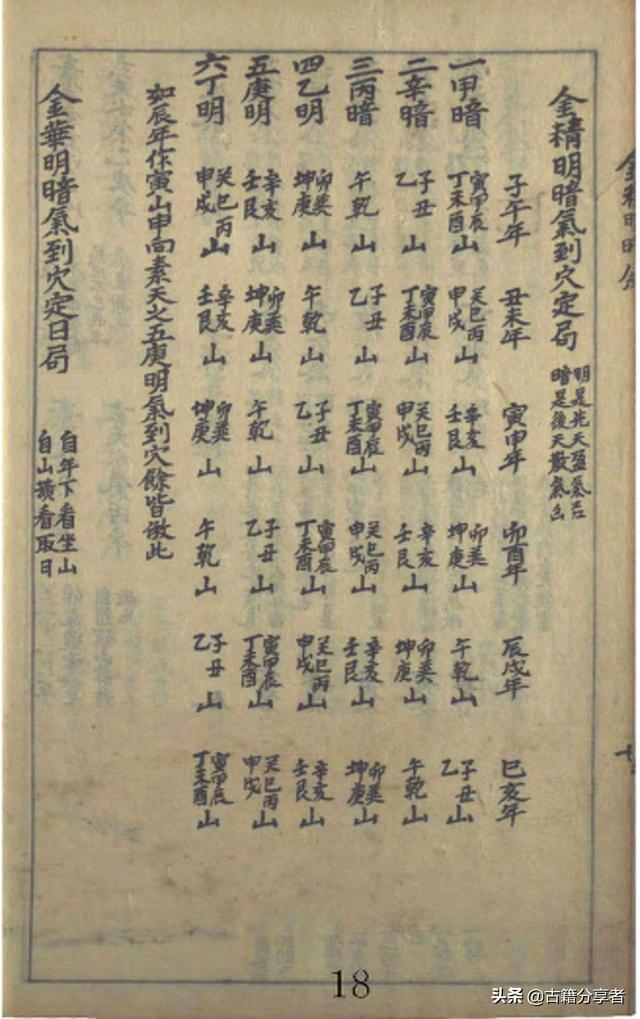 金精明暗氣到穴定局 明是先天盈氣吉 暗是後天散氣凶
子午年 丑未年 寅申年 卯酉年 辰戌年 巳亥年
一甲暗 寅甲辰丁未酉山 癸巳丙申戌山 辛亥壬艮山 卯巽坤庚山 午乾山 子丑乙山
二辛暗 子丑乙山 寅甲辰丁未酉山 癸巳丙申戌山 辛亥壬艮山 卯巽坤庚山 午乾山
三丙暗 午乾山 子丑乙山 寅甲辰丁未酉山 癸巳丙申戌山 辛亥壬艮山 卯巽坤庚山
四乙明 卯巽坤庚山 午乾山 子丑乙山 寅甲辰丁未酉山 癸巳丙申戌山 辛亥壬艮山
五庚明 辛亥壬艮山 卯巽坤庚山 午乾山 子丑乙山 寅甲辰丁未酉山 癸巳丙申戌山
六丁明 癸巳丙申戌山 辛亥壬艮山 卯巽坤庚山 午乾山 子丑乙山 寅甲辰丁未酉山
如辰年作寅山申向素天之五庚明氣到穴餘皆倣此
金華明暗氣到穴定日局 自年下看坐山 自山橫看取日
18
头条 @古籍分享者